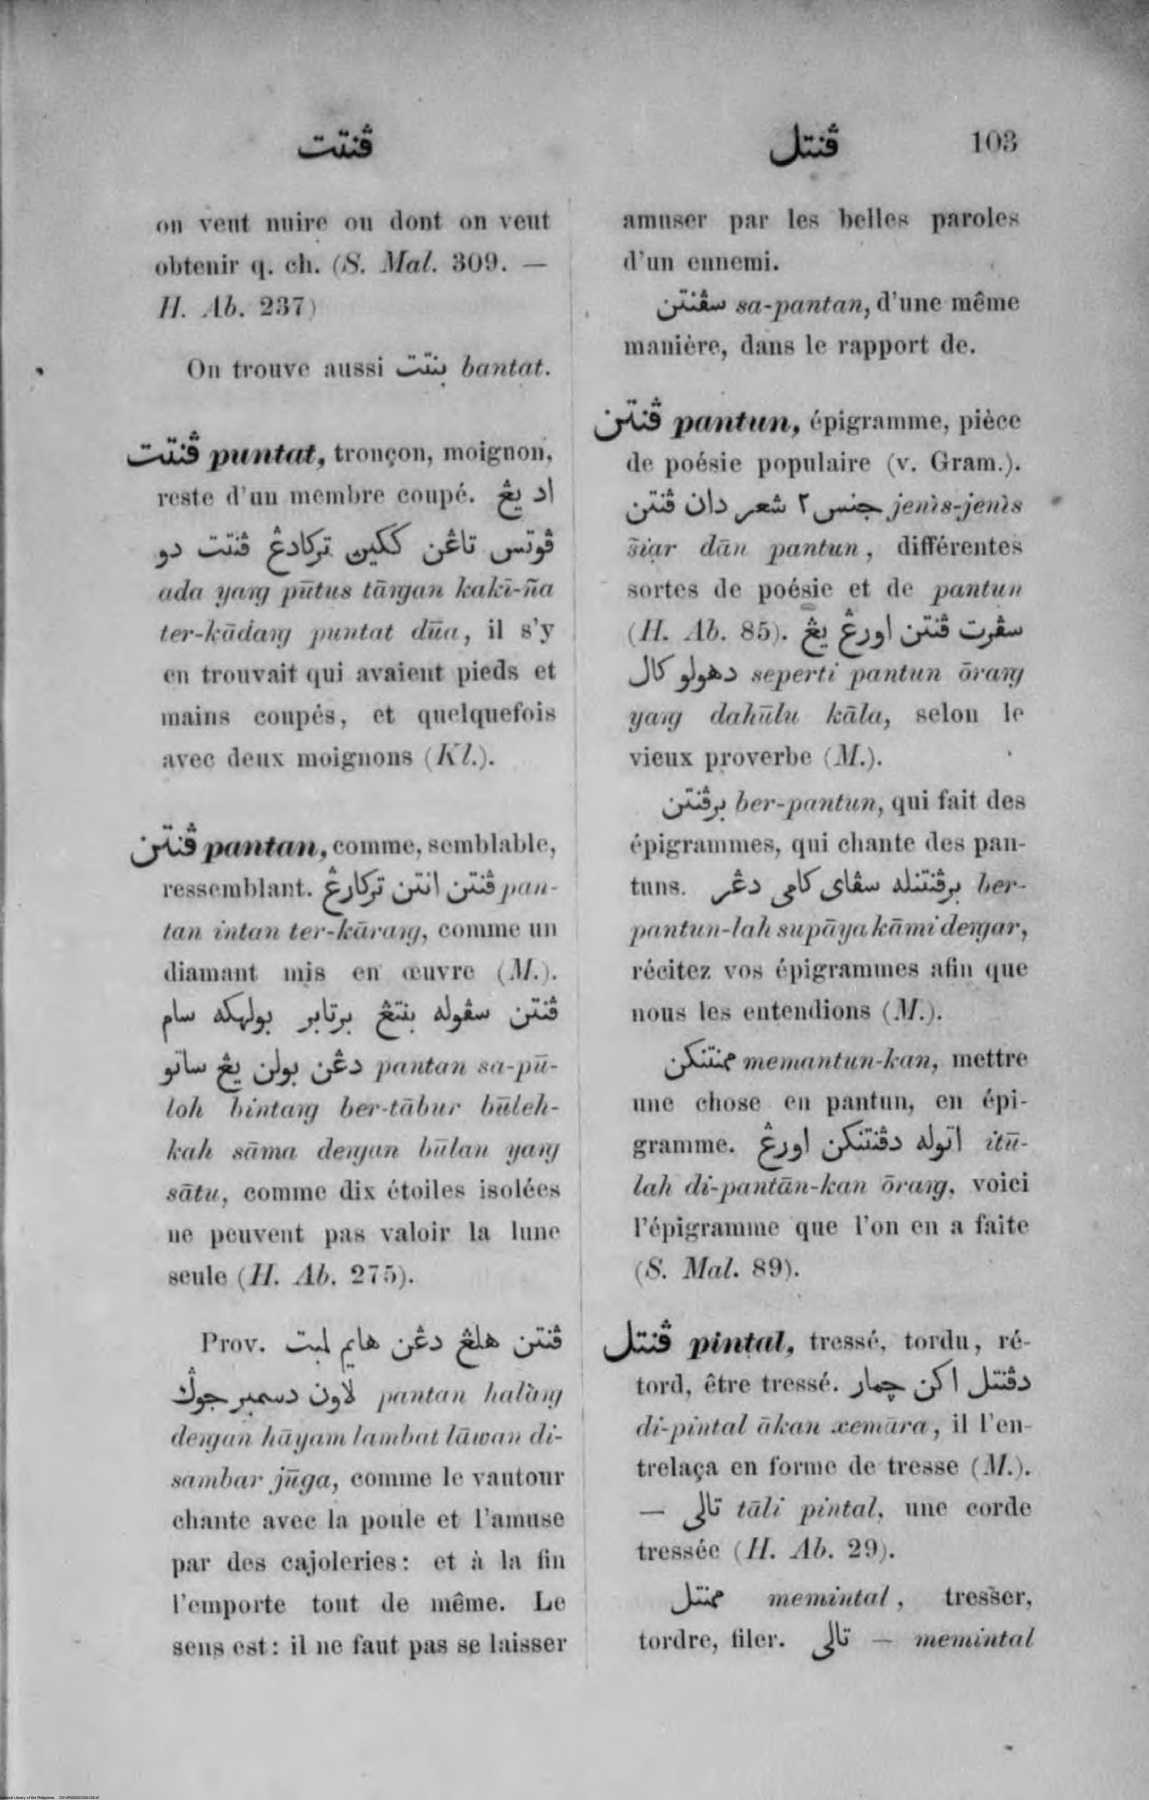 ڤنتت
ڤنتل 103
on veut nuire ou dont on veut
obtenir q. ch. (S. Mal. 309. —
H. Ab. 237)
On trouve aussi بنتت bantat.
ڤنتت puntat, tronçon, moignon,
reste d'un membre coupé. اد يڠ
ڤوتس تاڠن ككين تركادڠ ڤنتت دو
ada yaŋ pūtus tāŋan kakī-ña
ter-kādaŋ puntat dūa, il s'y
en trouvait qui avaient pieds et
mains coupés, et quelquefois
avec deux moignons (Kl.).
ڤنتن pantan, comme, semblable,
ressemblant. ڤنتن انتن تركارڠ pan-
tan intan ter-kāraŋ, comme un
diamant mis en œuvre (M.).
ڤنتن سڤوله بنتڠ برتابر بولهكه سام
دڠن بولن يڠ ساتو pantan sa-pū-
loh bintaŋ ber-tābur būleh-
kah sāma deŋan būlan yaŋ
sātu, comme dix étoiles isolées
ne peuvent pas valoir la lune
seule (H. Ab. 275).
Prov. ڤنتن هلڠ دڠن هايم لمبت
لاون دسمبر جوݢ pantan halàŋ
deŋan hāyam lambat lāwan di-
sambar jūga, comme le vautour
chante avec la poule et l'amuse
par des cajoleries: et à la fin
l'emporte tout de même. Le
sens est: il ne faut pas se laisser
amuser par les belles paroles
d'un ennemi.
سڤنتن sa-pantan, d'une même
manière, dans le rapport de.
ڤنتن pantun, épigramme, pièce
de poésie populaire (v. Gram.).
جنس ٢ شعر دان ڤنتن jenìs-jenìs
šiạr dān pantun, différentes
sortes de poésie et de pantun
(H. Ab. 85). سڤرت ڤنتن اورڠ يڠ
دهولو كال seperti pantun ōraŋ
yaŋ dahūlu kāla, selon le
vieux proverbe (M.).
برڤنتن ber-pantun, qui fait des
épigrammes, qui chante des pan-
tuns. برڤنتنله سڤاى كامى دڠر ber-
pantun-lah supāya kāmi deŋar,
récitez vos épigrammes afin que
nous les entendions (M.).
ممنتنكن memantun-kan, mettre
une chose en pantun, en épi-
gramme. اتوله دڤنتنكن اورڠ itū-
lah di-pantūn-kan ōraŋ, voici
l'épigramme que l'on en a faite
(S. Mal. 89).
ڤنتل pintal, tressé, tordu, ré-
tord, être tressé. دڤنتل اكن چمار
di-pintal ākan xemāra, il l'en-
trelaça en forme de tresse (M.).
— تالى tāli pintal, une corde
tressée (H. Ab. 29).
ممنتل memintal, tresser,
tordre, filer. تالى — memintal